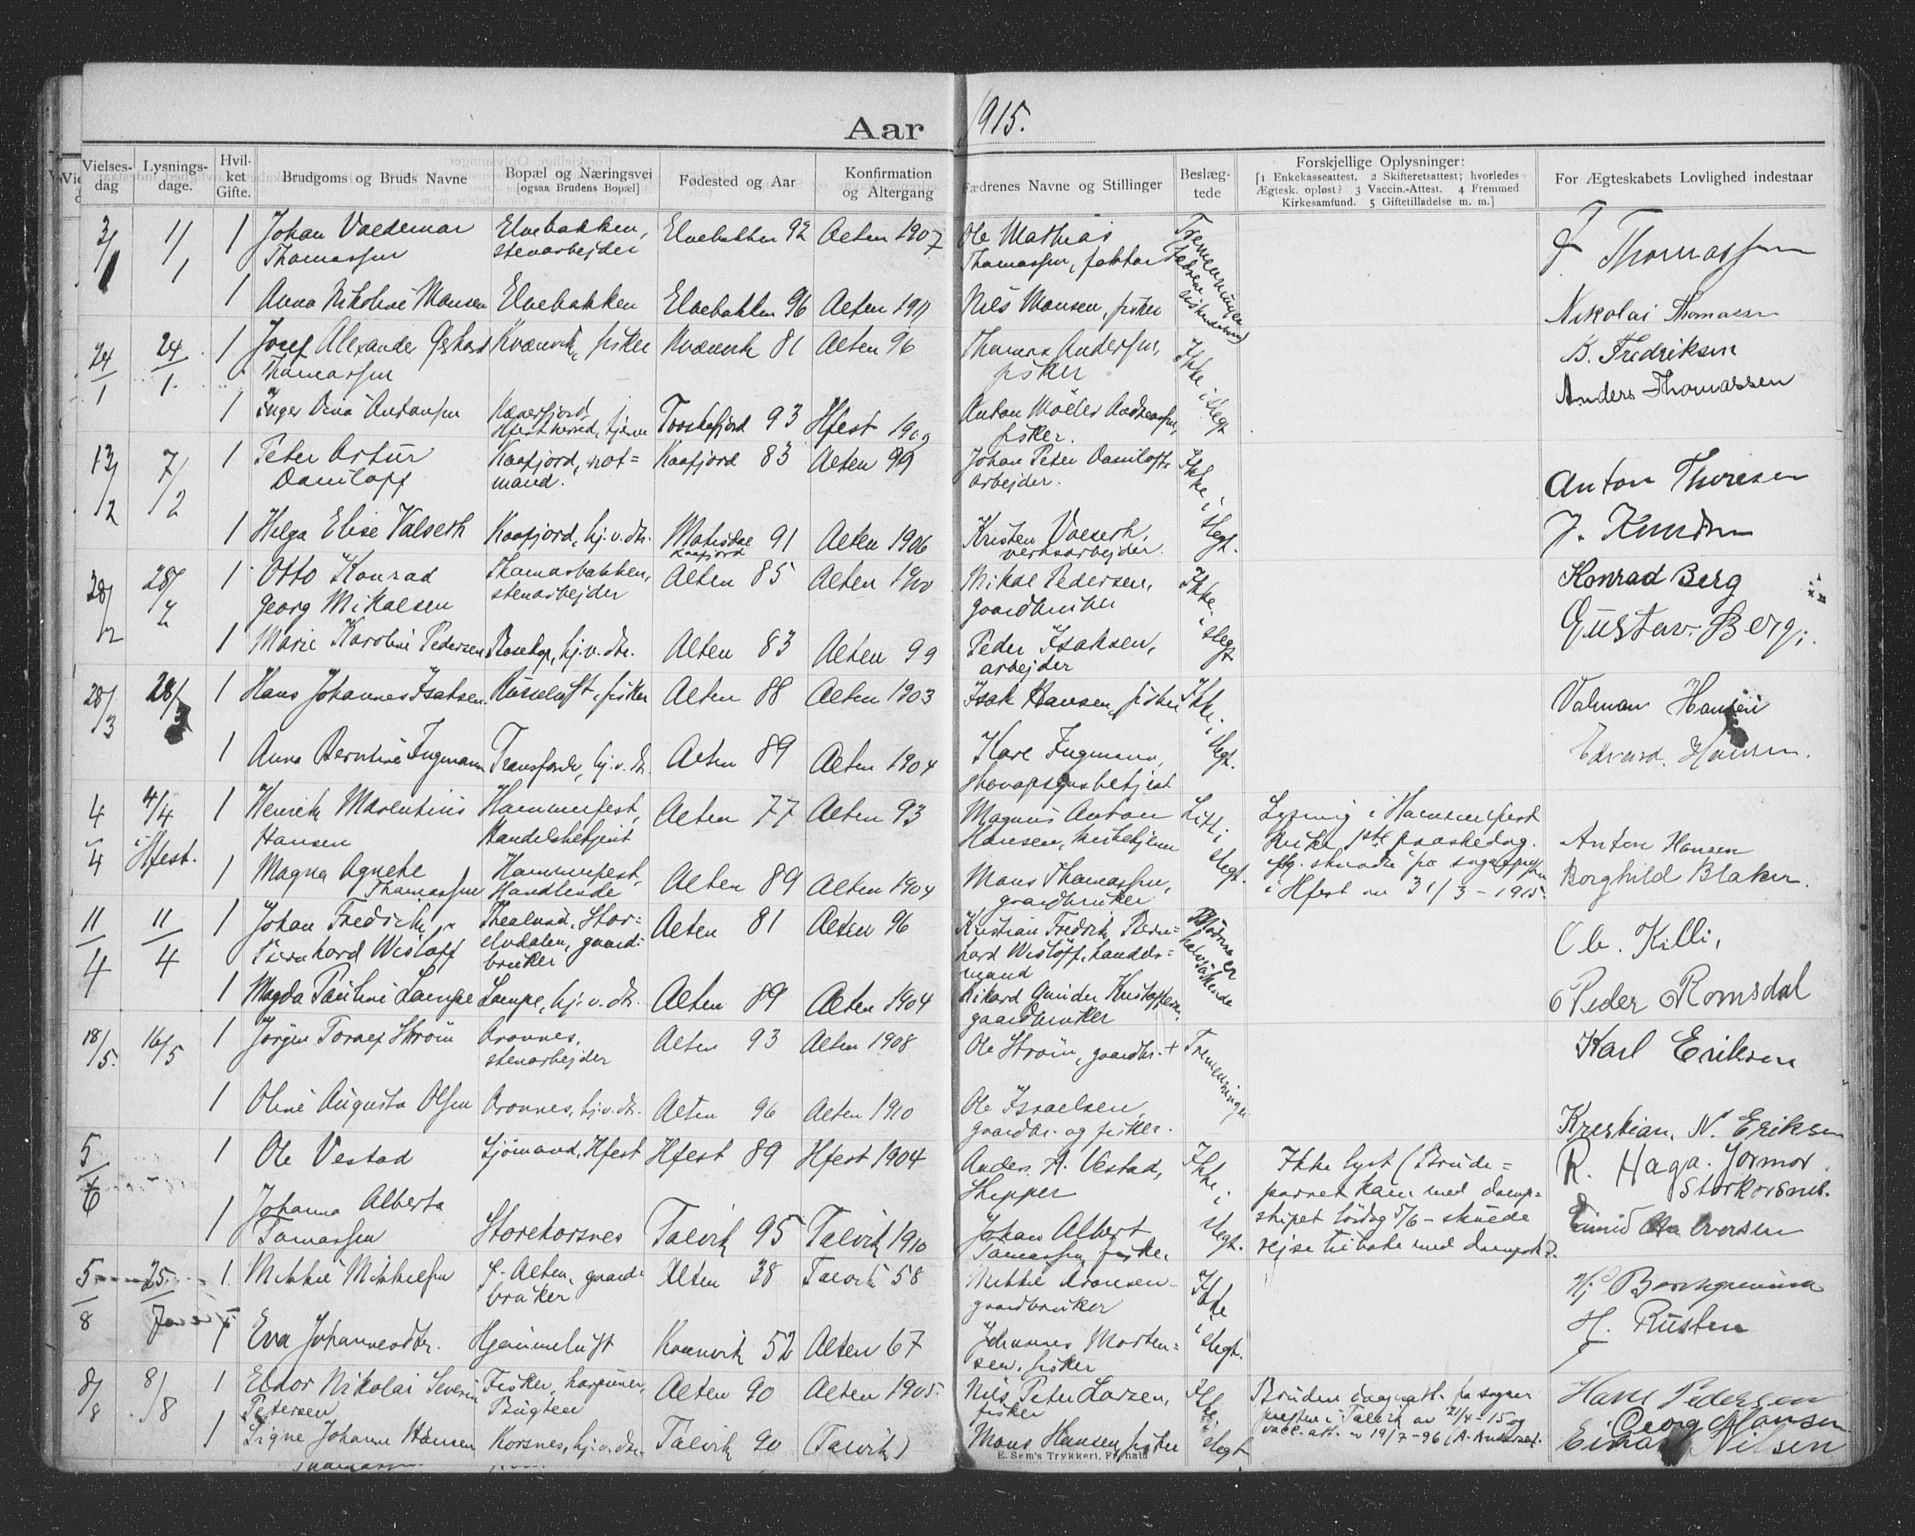 Aar 1915.
Vielses-dag
Lysnings-dage.
Hvil-ket Gifte.
Brudgoms og Bruds Navne
Bopæl og Næringsvei
[ogsaa Brudens Bopæl]
Fødested og Aar
Konfirmation og Altergang
Fædrenes Navne og Stillinger
Beslæg-tede
Forskjellige Oplysninger:
[1 Enkekasseattest. 2 Skifteretsattest; hvorledes
Ægtesk. opløst? 3 Vaccin.-Attest. 4 Fremmed
Kirkesamfund. 5 Giftetilladelse m. m.]
For Ægteskabets Lovlighed indestaar
3/1 1/1 1 Johan Valdemar Elvebakken, Elvebakken 92 Alten 1907 Ole Mathias Tremenninger
Thomassen stenarbejder Thomassen, faktor Thomassen
1 Anna Nikoline Mansen Elvebakken Elvebakken 96 Alten 1911 Nils Mansen, fisker Nikolai Thomasen
24/1 24/1. 1 Josef Alexander Kvænvik, fisker Kvænvik 81 Alten 96 Thomas Andersen, Ikke i slegt B. Fredriksen
Thomassen fisker Anders Thomassen
1 Inger 93 Hfest 1909 Anton Andreassen,
fisker.
13/2 7/2 1 Peter Artur Kaafjord, not= Kaafjord 83 Alten 99 Johan Peter Daniloff, Ikke i slegt. Anton Thoresen
Daniloff mand. arbejder.
1 Helga Elise Valseth Kaafjord, hj.v.dtr. Matisdal 91 Alten 1906 Kristen Valseth, J. Knudsen
Kaafjord verksarbejder
28/2 28/2 1 Otto Konrad Thomasbakken, Alten 85 Alten 1900 Mikal Pedersen, Ikke i slegt Konrad Berg
Georg Mikalsen stenarbejder gaardbruker Gustav Berg
1 Marie Karoline Pedersen Bosekop, hj.v.dtr. Alten 83 Alten 99 Peder Isaksen,
arbejder
28/3 28/3 1 Hans Johannes Isaksen. Russeluft, fisker Alten 88 Alten 1903 Isak Hansen, fisker Ikke i slegt. Valman Hansen
1 Anna Berntine Ingmann Transfarelv, hj.v.dtr. Alten 89 Alten 1904 Karl Ingmann, Edvard Hansen.
skovopsynsbetjent
4/4 4/4 i Hfest. 1 Henrik Marentius Hammerfest, Alten 77 Alten 93 Magnus Anton Litt i slegt. Lysning i Hammerfest
Hansen Handelsbetjent Hansen, kirketjener kirke 1ste paaskedag. Anton Hansen
1 Magna Agnete Hammerfest, Alten 89 Alten 1904 Mans Thomassen, Borghild Blaker.
Thomassen Handlende gaardbruker i Hfest av 31/3 - 1915.
11/4 11/4 1 Johan Fredrik Stor= Alten 81 Alten 96 Kristian Fredrik Bern= Mødrene er halvsøskende
Bernhard Wisløff elvdalen, gaard= hard Wisløff, handels= Ole Killi,
bruker mand
1 Magda Pauline Lampe Lampe, hj.v.dtr. Alten 89 Alten 1904 Rikard Gunder Kristoffersen, Peder Romsdal
gaardbruker
18/5. 16/5 1 Jørgen Toralf Strøm Aronnes, Alten 93 Alten 1908 Ole Strøm, gaardbr. + Tremenninger Karl Eriksen
stenarbejder
1 Oline Augusta Olsen Aronnes, hj.v.dtr. Alten 96 Alten 1910 Ole Israelsen,
gaardbr. og fisker. Kristian. N. Eriksen
5/6 1 Ole Vestad Sjømand, Hfest Hfest 89 Hfest 1904 Anders A. Vestad, Ikke i slegt. Ikke lyst (Brude= R. Haga. Jormor.
Skipper parret kom med damp= Storkorsnes.
1 Johanna Alberta Storekorsnes Talvik 95 Talvik 1910 Johan Albert skipet lørdag 5/6 - skulde Iversen
Tomassen Tomassen, fisker reise tilbake med dampsk.).
5/8 25/7 1. Mikkel Mikkelsen Alten, gaard= Alten 38 Talvik 58 Mikkel Aronsen Ikke i slegt. Hj Borchgrevink
bruker gaardbruker
1 Eva Johannesdtr. Hjemmeluft Kvænvik 52 Alten 67 Johannes Morten= H. Rusten
sen, fisker
8/8 8/8 1 Eldor Nikolai Severin Fisker, harpuner, Alten 90 Alten 1905. Nils Peter Larsen, Ikke i slegt Bruden vaccinatt. fra sogne= Hans Pedersen
Petersen Bugten fisker presten i Talvik av 21/4 - 15 og Georg Hansen
1 Signe Johanne Hansen Korsnes, hj.v.dtr. Talvik 90 (Talvik) Mons Hansen, fisker vacc. att. av 19/7 - 96 Einar Nilsen
E. Sem's Trykkeri, Fr.hald